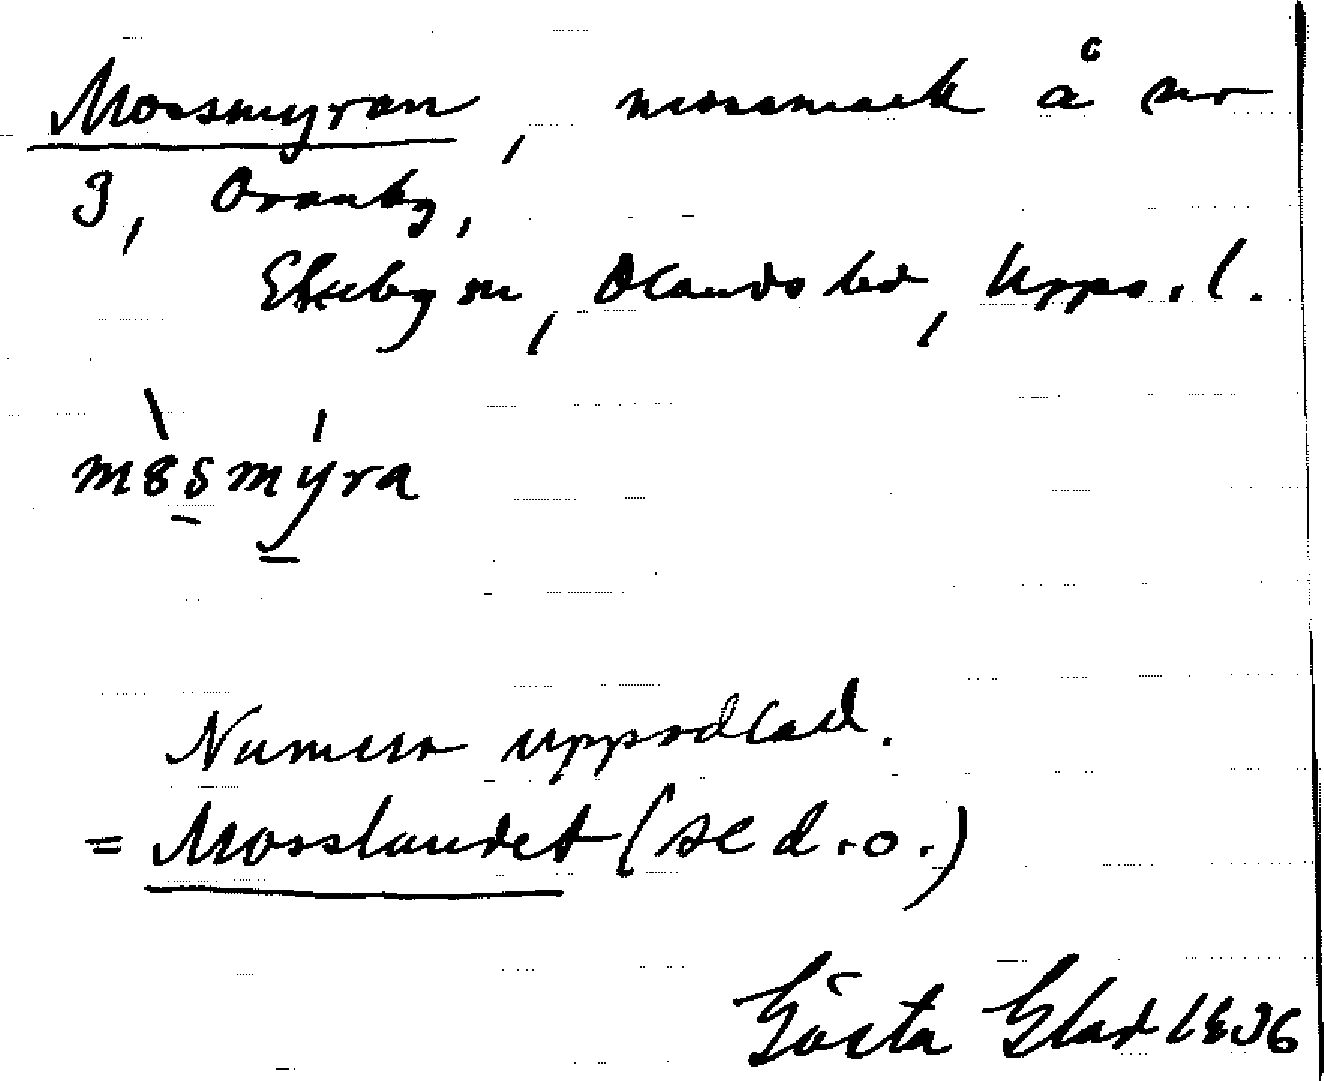 Mossmyran, mossmark å nr
3, Oranby,
Ekeby sn, Olands hd, Upps. l.
mòsmýra
Numera uppodlad.
= Mosslandet (se d. o.)
Gösta Elad 1936